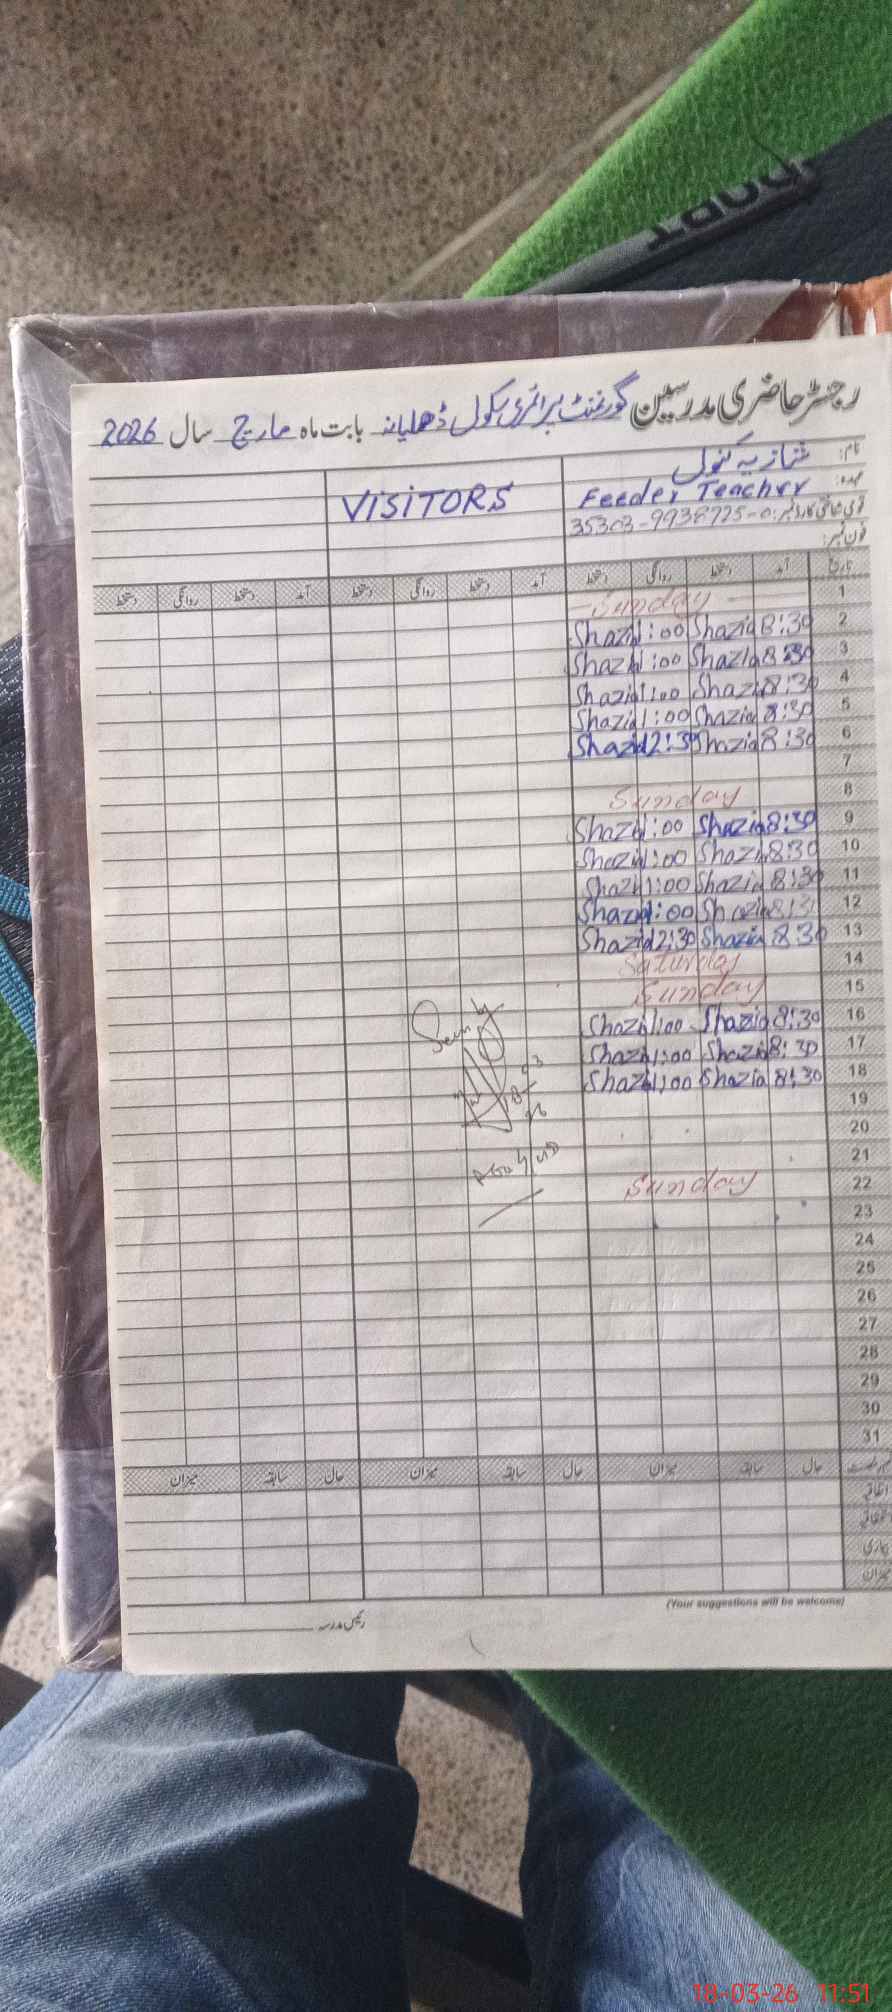 PORT
رجسٹر حاضری مدرسین گورنمنٹ پرائمری سکول ڈھلیانہ بابت ماہ مارچ سال 2026
نام: شازیہ کنول
عہدہ: Feeder Teacher VISITORS
قومی شناختی کارڈ نمبر:
فون نمبر:
تاریخ آمد دستخط روانگی دستخط آمد دستخط روانگی دستخط آمد دستخط روانگی دستخط
1 - Sunday -
2 8:30 Shazia 1:00 Shazia
3 8:30 Shazia 1:00 Shazia
4 8:30 Shazia 1:00 Shazia
5 8:30 Shazia 1:00 Shazia
6 8:30 Shazia 12:30 Shazia
7
8 Sunday
9 8:30 Shazia 1:00 Shazia
10 8:30 Shazia 1:00 Shazia
11 8:30 Shazia 1:00 Shazia
12 8:3 Shazia 1:00 Shazia
13 8:30 Shazia 12:30 Shazia
14 Saturday
15 Sunday
16 8:30 Shazia 1:00 Shazia
17 8:30 Shazia 1:00 Shazia
18 8:30 Shazia 1:00 Shazia
Seen by
18 03 26
19
20
21
22 Sunday
23
24
25
26
27
28
29
30
31
حال سابقہ میزان حال سابقہ میزان حال سابقہ میزان
اتفاقیہ
بیماری
میزان
(Your suggestions will be welcome)
رئیس مدرسہ
18-03-26 11:51